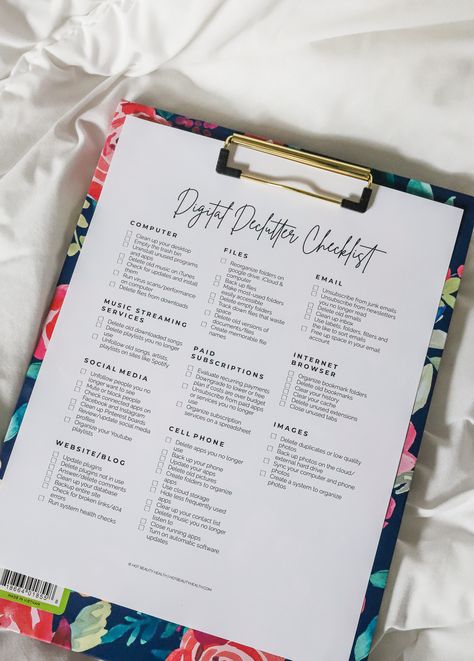 Digital Declutter Checklist
COMPUTER
Clean up your desktop
Empty the trash bin
Uninstall unused programs
and apps
Delete old music on iTunes
Check for updates and install
them
Run virus scans/performance
on computer
Delete files from downloads
MUSIC STREAMING
SERVICES
Delete old downloaded songs
Delete playlists you no longer
use
Unfollow old songs, artists,
playlists on sites like Spotify
SOCIAL MEDIA
Unfollow people you no
longer want to see
Mute or block people
Check connected apps on
Facebook and Instagram
Clean up Pinterest boards
Review/update social media
profiles
Organize your Youtube
playlists
WEBSITE/BLOG
Update plugins
Delete plugins not in use
Answer/delete comments
Clean up your database
Backup entire site
Check for broken links/404
errors
Run system health checks
FILES
Reorganize folders on
google drive, iCloud &
computer
Back up files
Make most-used folders
easily accessible
Delete empty folders
Track down files that waste
space
Delete old versions of
documents/files
Create memorable file
names
PAID
SUBSCRIPTIONS
Evaluate recurring payments
Downgrade to lower or free
plan if costs are over budget
Unsubscribe from paid apps
or services you no longer
use
Organize subscription
services on a spreadsheet
CELL PHONE
Delete apps you no longer
use
Back up your phone
Update your apps
Delete old pictures
Create folders to organize
apps
Use cloud storage
Hide less frequently used
apps
Clear up your contact list
Delete music you no longer
listen to
Close running apps
Turn on automatic software
updates
EMAIL
Unsubscribe from junk emails
Unsubscribe from newsletters
you no longer read
Delete old emails
Clean up your inbox
Use labels, folders, filters and
the like to sort emails
Free up space in your email
account.
INTERNET
BROWSER
Organize bookmark folders
Delete old bookmarks
Clear your history
Clear your cache
Delete unused extensions
Close unused tabs
IMAGES
Delete duplicates or low quality
photos
Back up photos on the cloud/
external hard drive
Sync your computer and phone
photos
Create a system to organize
photos
© HOT BEAUTY HEALTH | HOTBEAUTYHEALTH.COM
MADE IN VIETNAM